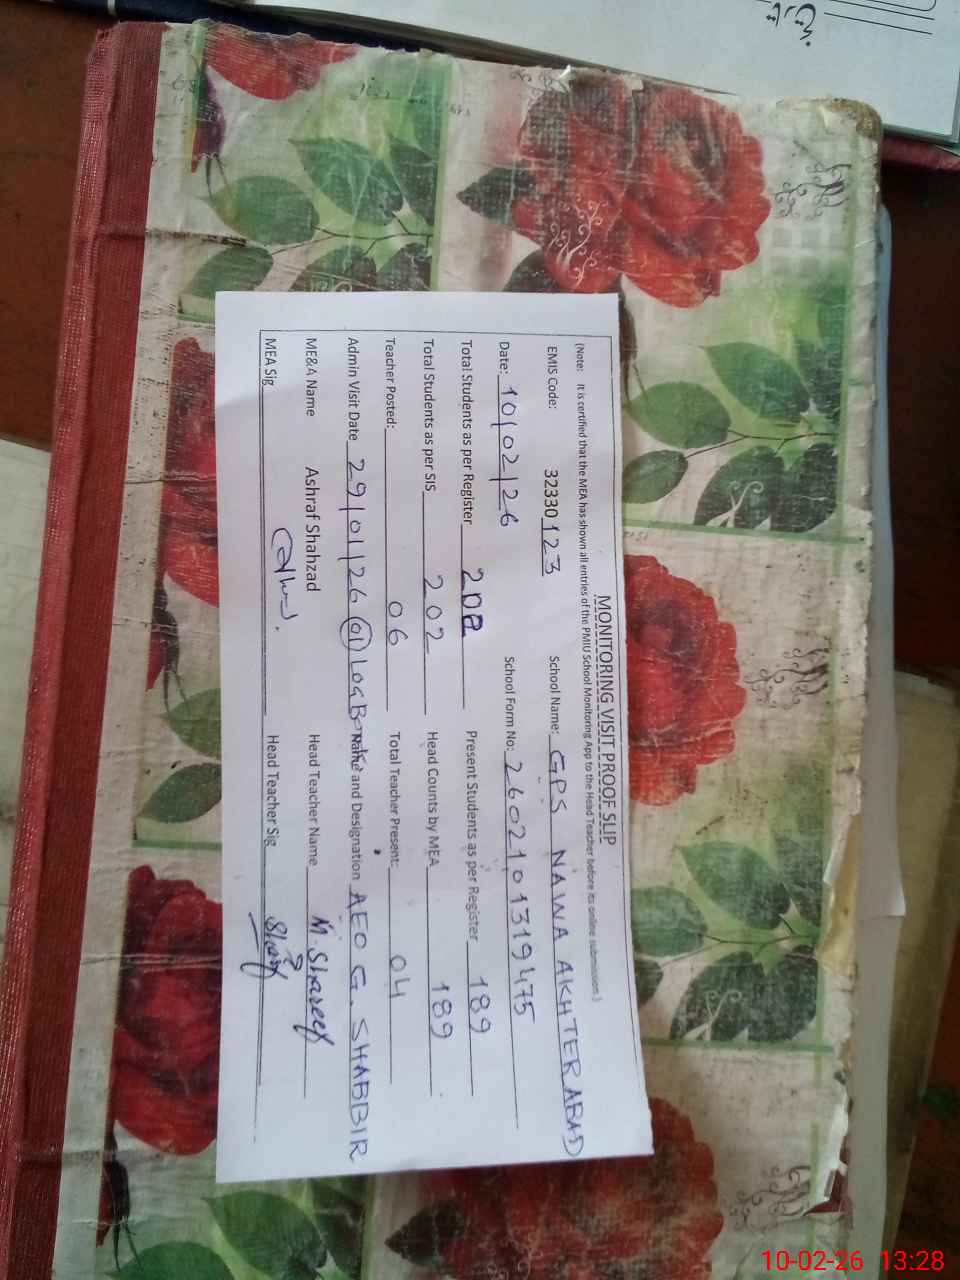 MONITORING VISIT PROOF SLIP
(Note: It is certified that the MEA has shown all entries of the PMIU School Monitoring App to the Head Teacher before its online submission.)
EMIS Code: 32330123 School Name: GPS NAWA AKHTER ABAD
Date: 10/02/26 School Form No: 2602101319475
Total Students as per Register 202 Present Students as per Register 189
Total Students as per SIS 202 Head Counts by MEA 189
Teacher Posted: 06 Total Teacher Present: 04
Admin Visit Date 29/01/26 01 LOGBook Name and Designation AEO G. SHABBIR
ME&A Name Ashraf Shahzad Head Teacher Name M. Shareef
MEA Sig Head Teacher Sig
10-02-26 13:28